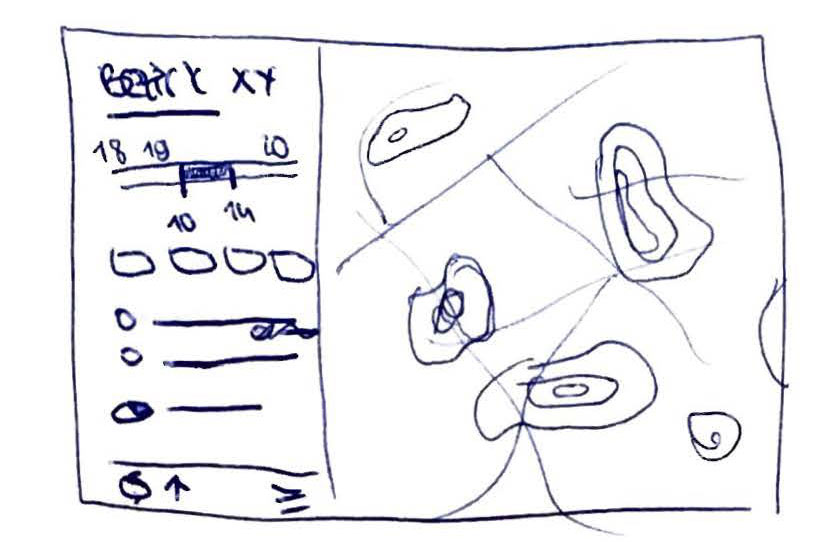 Bezirk XY
18 19 20
10 14